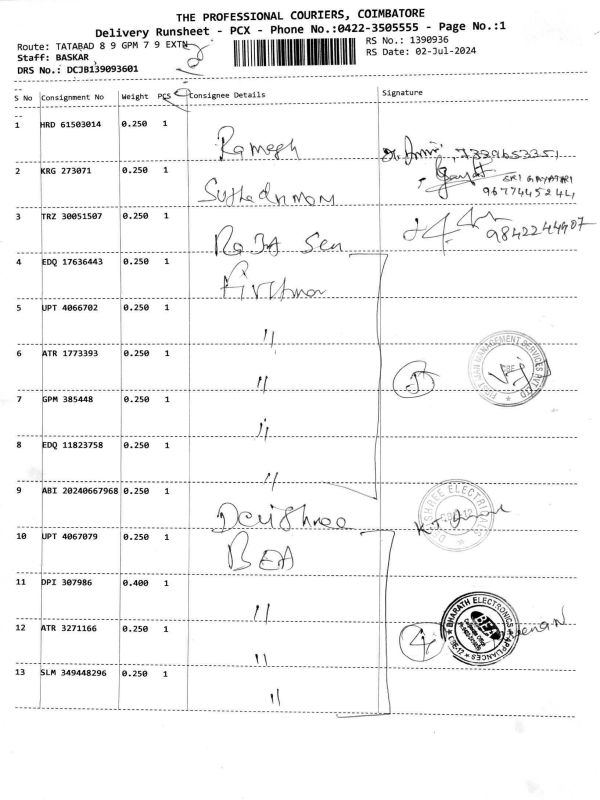 THE PROFESSIONAL COURIERS, COIMBATORE
Delivery Runsheet - PCX - Phone No.:0422-3505555 - Page No.:1
Route: TATABAD 8 9 GPM 7 9 EXTN
RS No.: 1390936
Staff: BASKAR
RS Date: 02-Jul-2024
DRS No.: DCJB139093601
S No Consignment No Weight PCS Consignee Details Signature
1 HRD 61503014 0.250 1 Ramesh 7339653351
2 KRG 273071 0.250 1 SRI GAYATRI
9677445244
3 TRZ 30051507 0.250 1 RaJA Sen 9842244907
4 EDQ 17636443 0.250 1 Firstman
5 UPT 4066702 0.250 1 "
6 ATR 1773393 0.250 1 "
7 GPM 385448 0.250 1 "
8 EDQ 11823758 0.250 1 "
9 ABI 20240667968 0.250 1 DeviShree
DEVISHREE ELECTRICALS
10 UPT 4067079 0.250 1 BEA
11 DPI 307986 0.400 1 "
12 ATR 3271166 0.250 1 "
BHARATH ELECTRONICS & APPLIANCES
BEA
13 SLM 349448296 0.250 1 "